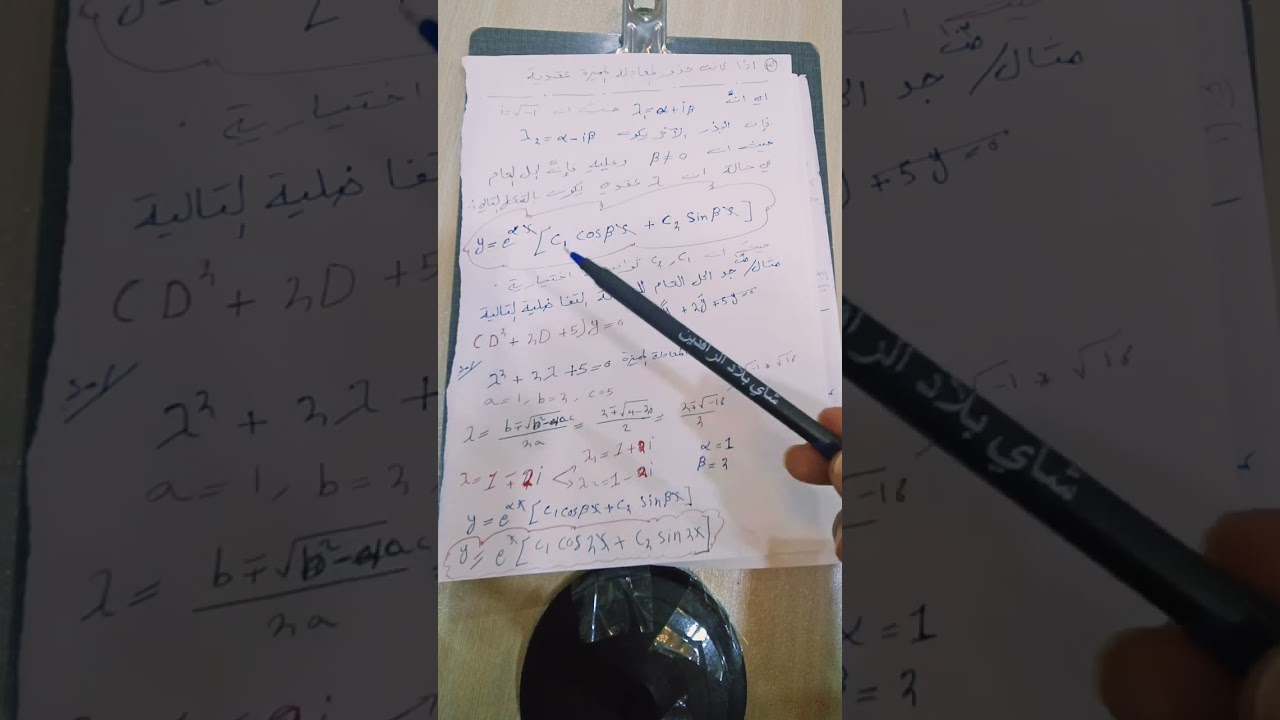 اذا كانت جذور المعادلة المميزة عقدية
اي انّ λ₁=α+iβ حيث ان i=√-1
فإن الجذر الآخر يكون λ₂=α-iβ
حيث ان β≠0 وعليه فإنّ الحل العام
في حالة ان λ عقدية يكون بالشكل التالي:
y=e^αx [c₁ cosβx + c₂ sinβx]
حيث ان c₁, c₂ ثوابت اختيارية.
مثال/ جد الحل العام التفاضلية التالية
(D² + 2D + 5)y=0 + 2y + 5y=0
λ² + 2λ + 5 = 0 المعادلة المميزة
a=1, b=2, c=5
λ = b∓√b²-4ac / 2a = 2∓√4-20 / 2 = 2∓√-16 / 2
λ=1∓2i
λ₁=1+2i
λ₂=1-2i
α=1
β=2
y=e^αx [c₁cosβx+c₂ sinβx]
y=e^x [c₁ cos2x + c₂ sin2x]
شاي بلاد الرافدين